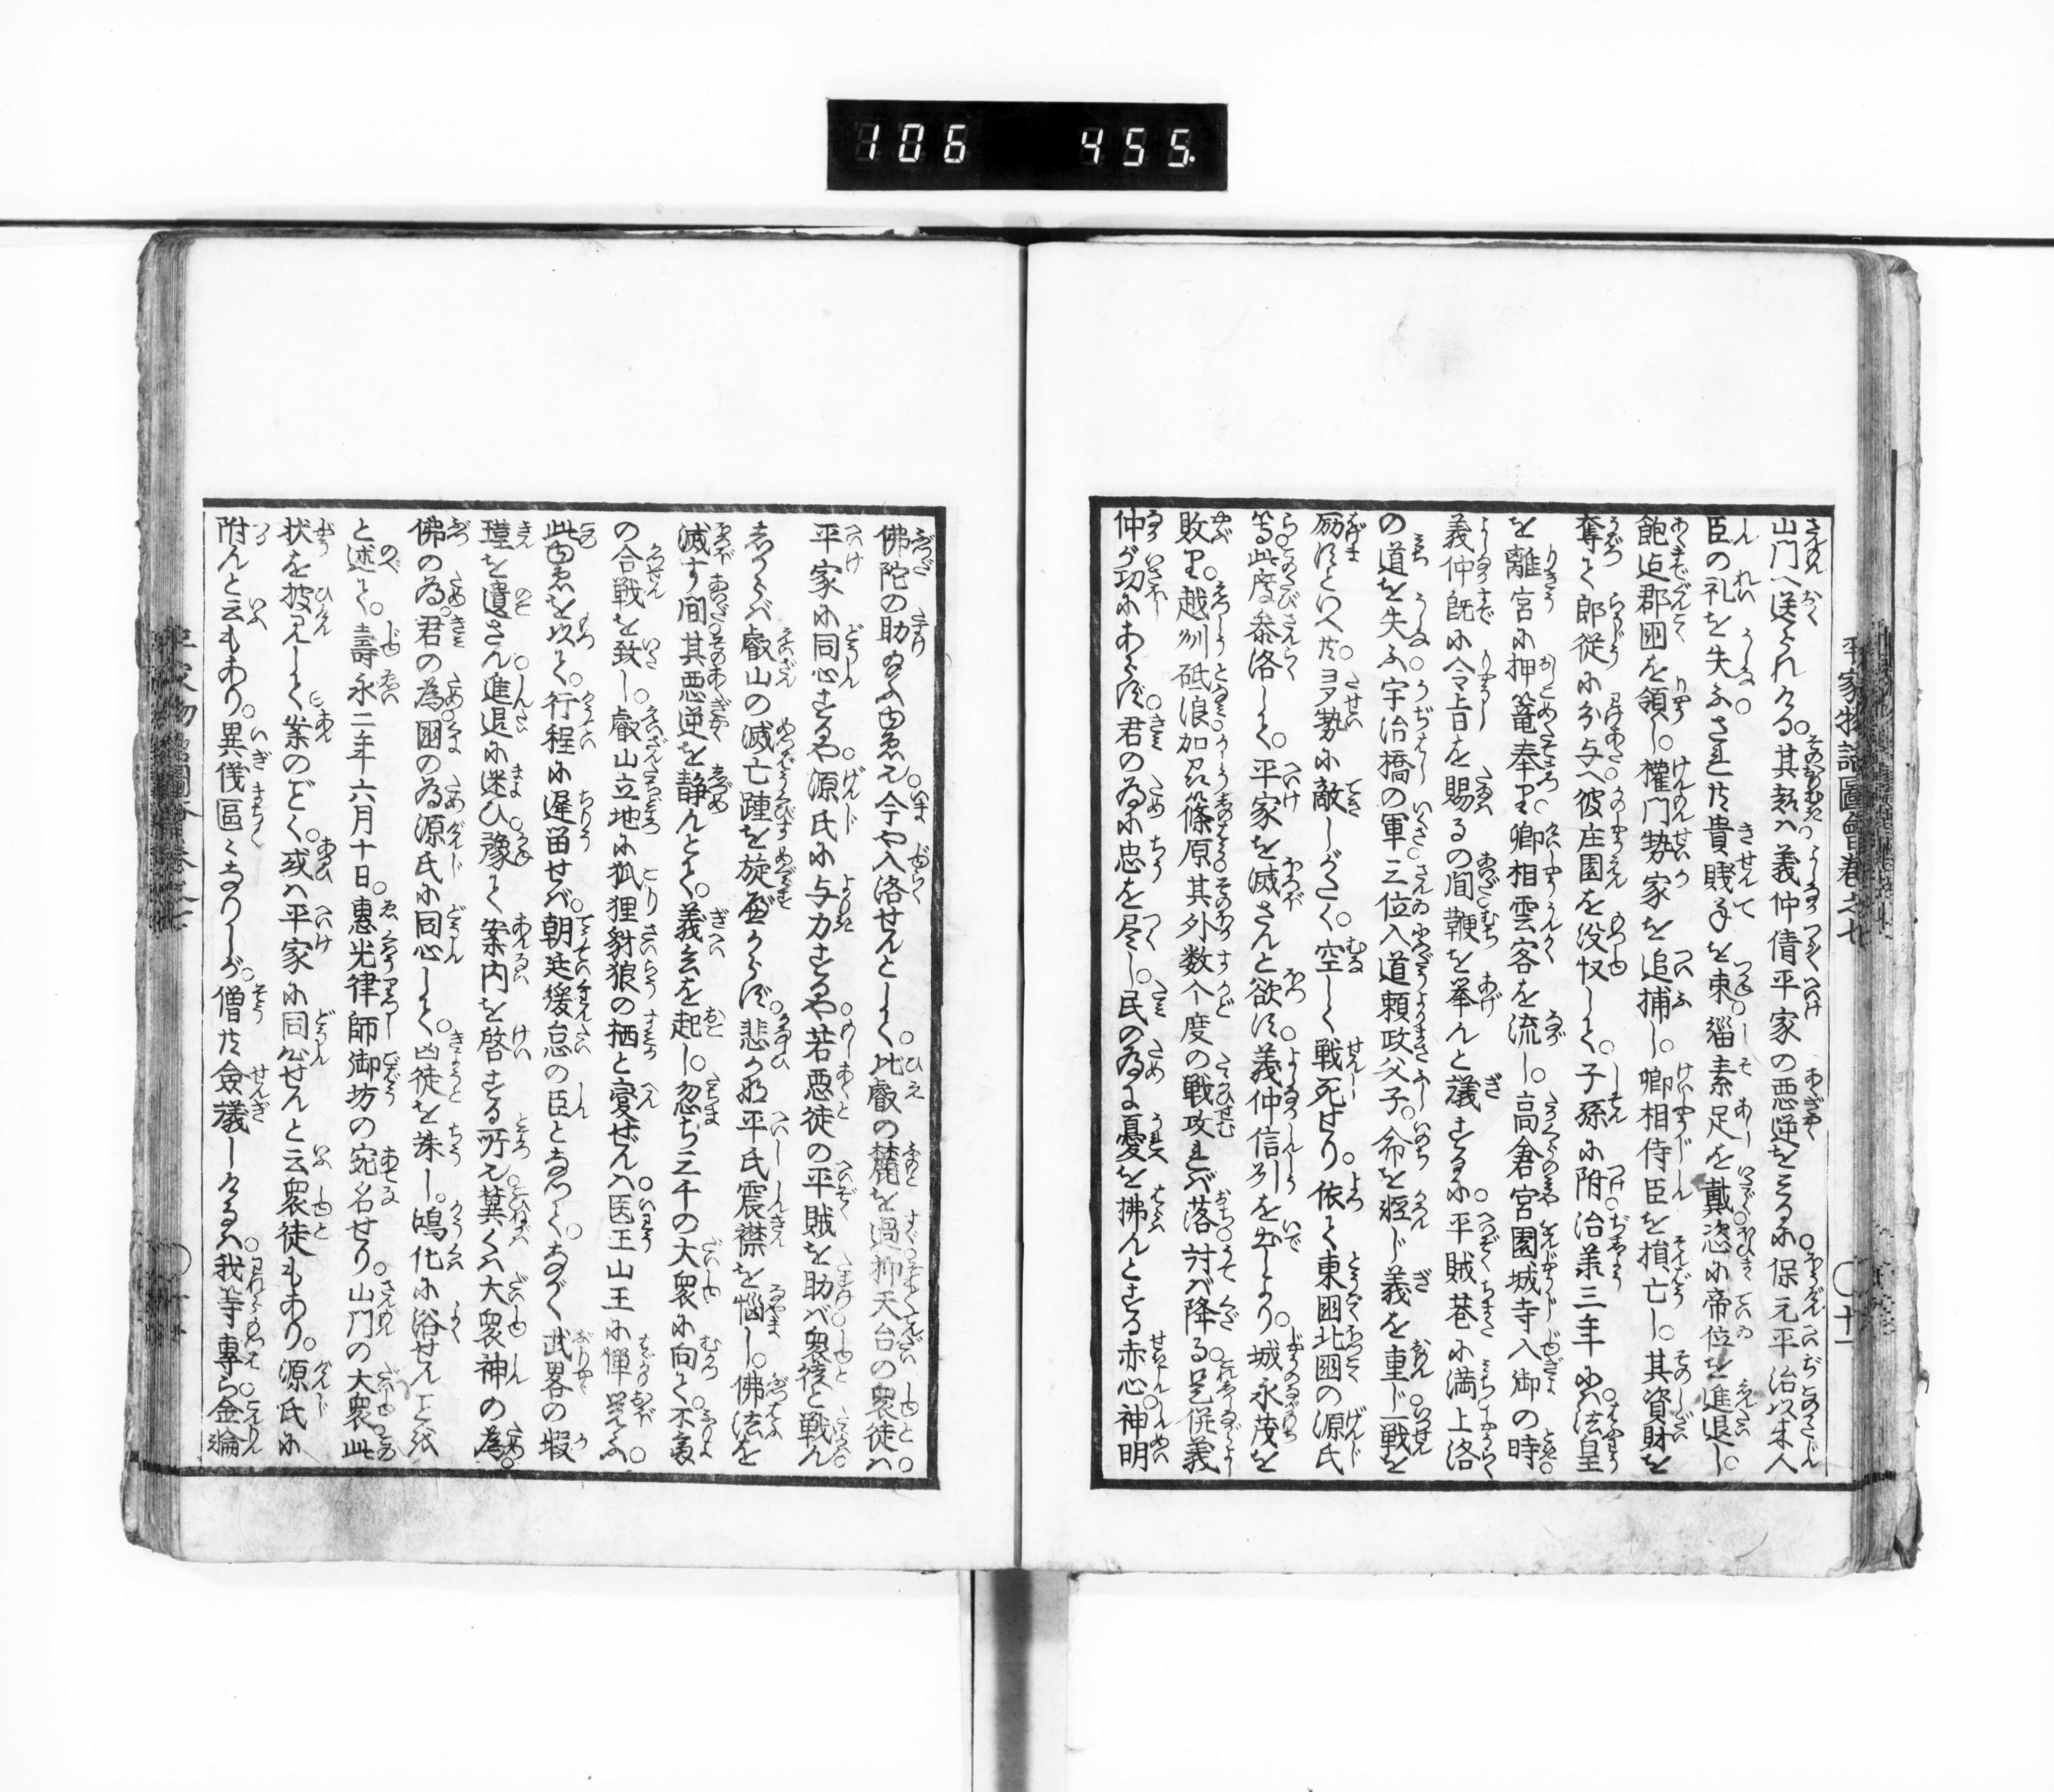 106 455.
平家物語圖會卷之七 〇十一
山門へ送られける。其趣ハ。義仲倩平家の悪逆をミるに。保元平治以来人
臣の礼を失ふ。され共貴賤手を束。緇素足を戴。恣に帝位を進退し。
飽迄郡国を領し。權門勢家を追捕し。卿相侍臣を損亡し。其資財を
奪て郎從に分与へ。彼庄園を没収して。子孫に附。治承三年に。法皇
を離宮に押篭奉り。卿相雲客を流し。高倉宮園城寺入御の時。
義仲既に令旨を賜るの间。鞭を挙んと議するに。平賊巷に満。上洛
の道を失ふ。宇治橋の軍。三位入道頼政父子。命を軽じ義を重じ。一戦を
励すといへ共。多勢に敵しがたく。空しく戦死せり。依て東国北国の源氏
等此度参洛して。平家を滅さんと欲す。義仲信州を出しより。城永茂を
敗り。越州砥浪加賀篠原其外数个度の戦。攻れバ落。討バ降る。是併義
仲が功にあらず。君の為に忠を尽し。民の為に憂を拂んとする赤心。神明
佛陀の助給ふゆゑ也。今や入洛せんとして。比叡の麓を過。抑天台の衆徒ハ。
平家に同心するや。源氏に与力するや。若悪徒の平賊を助バ。衆徒と戦ん。
しからバ叡山の滅亡踵を旋べからず。悲かな平氏震襟を悩し。佛法を
滅す间。其悪逆を静んとて。義兵を起し。忽ち三千の大衆に向て。不慮
の合戦を致し。叡山立地に狐狸豺狼の栖と変ぜん。ハ医王山王に憚思ふ。
此ゆゑを以て。行程に遅留せバ。朝廷緩怠の臣となつて。ながく武畧の瑕
瑾を遺さん。進退に迷ひ。豫て案内を啓する所也。冀くハ大衆神の為。
佛の為。君の為。国の為。源氏に同心して。凶徒を誅し。鴻化に浴せんことを
と述て。壽永二年六月十日。惠光律師御坊の宛名せり。山門の大衆。此
状を披見して。案のごとく。或ハ平家に同心せんと云衆徒もあり。源氏に
附んと云もあり。異儀區〻なりしが。僧共僉議しけるハ。我等專ら金輪